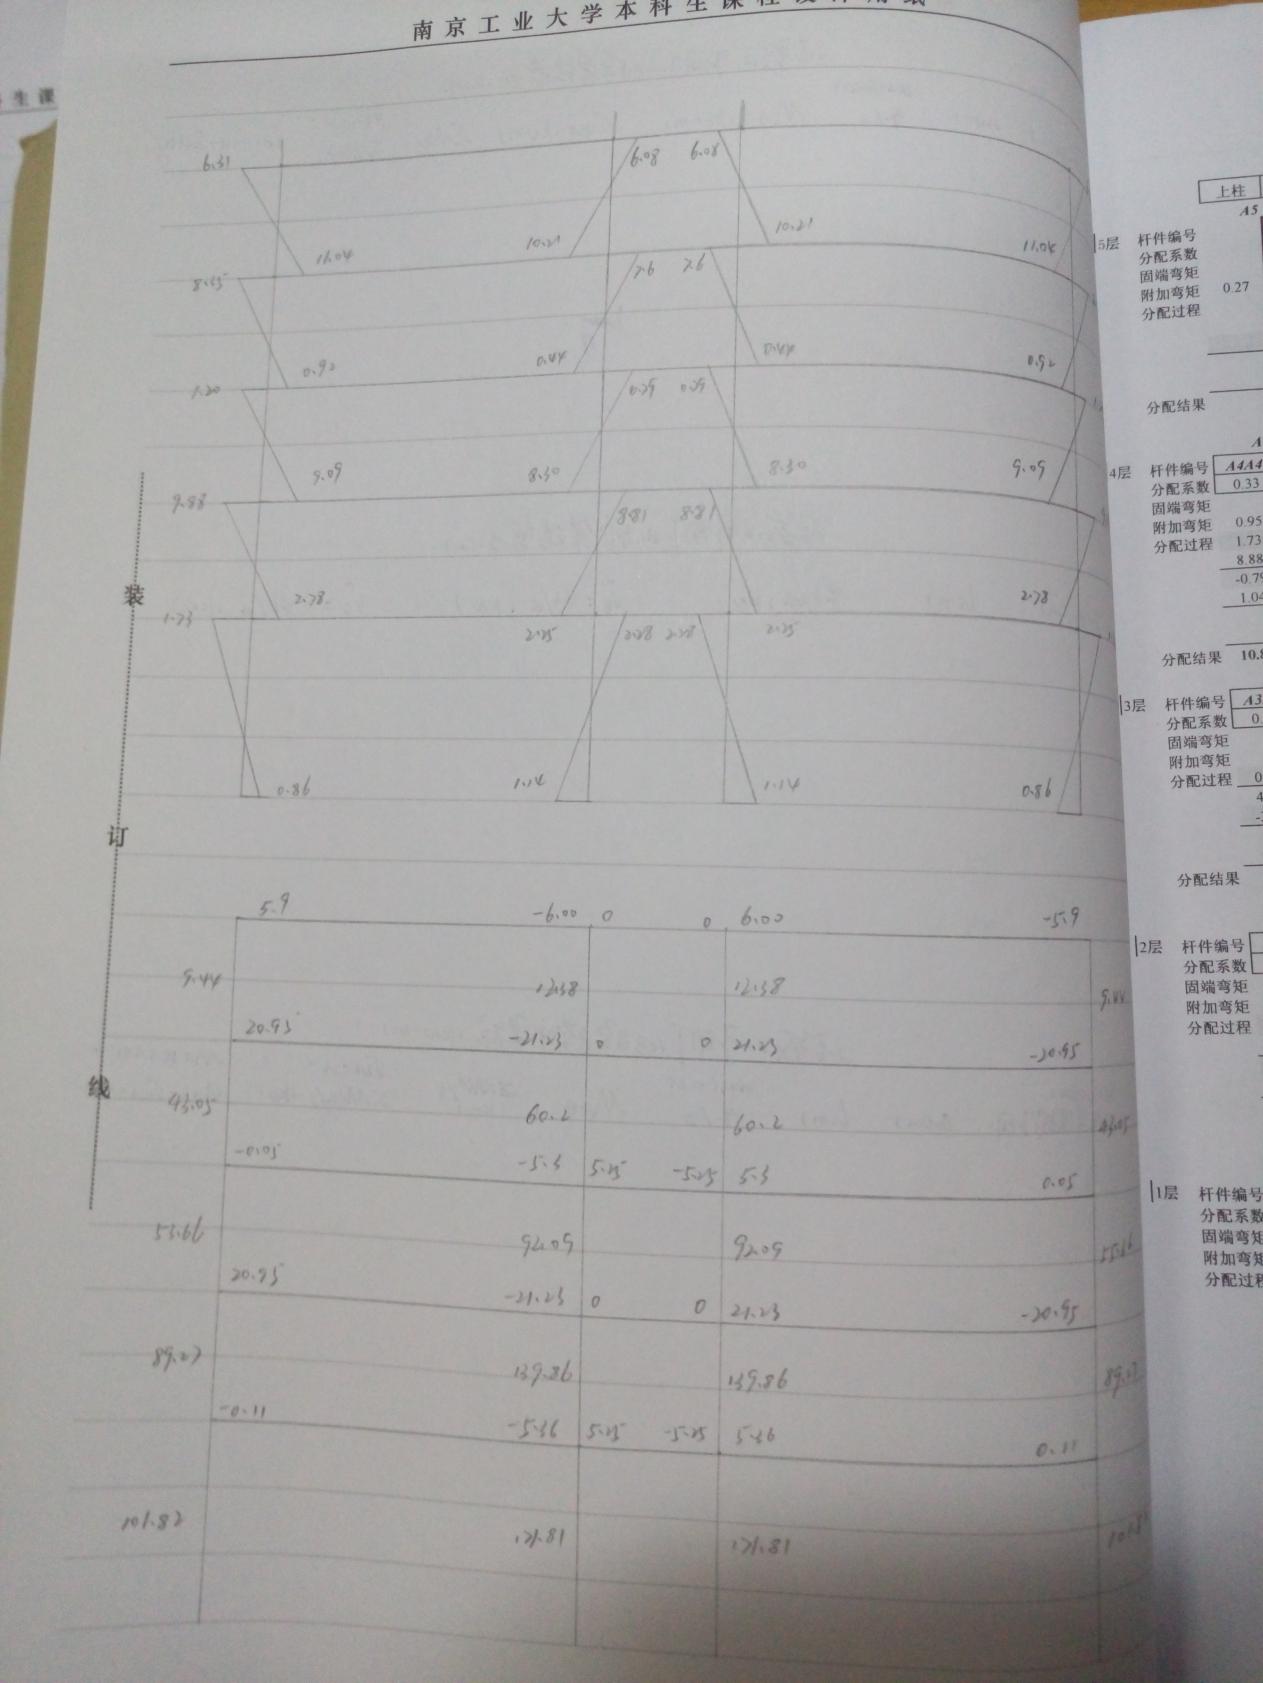 南京工业大学本科生课程设计用纸
生课
6.31 6.08 6.08
11.04 10.21 10.21 11.04
8.35 7.6 7.6
0.92 0.44 0.44 0.92
1.20 0.29 0.29
9.09 8.30 8.30 9.09
9.88 8.81 8.81
2.78 2.78
1.73 2.25 2.28 2.28 2.25
0.86 1.14 1.14 0.86
装
订
线
5.9 -6.00 0 0 6.00 -5.9
9.44 12.38 12.38 9.44
20.95 -21.23 0 0 21.23 -20.95
43.05 60.2 60.2 43.05
-0.05 -5.3 5.25 -5.25 5.3 0.05
92.09 92.09
20.95 -21.23 0 0 21.23 -20.95
89.27 139.86 139.86 89.27
-0.11 -5.36 5.25 -5.25 5.36 0.11
101.82 121.81 121.81
上柱
A5
5层 杆件编号
分配系数
固端弯矩
附加弯矩 0.27
分配过程
分配结果
4层 杆件编号 A4A4
分配系数 0.33
固端弯矩
附加弯矩 0.95
分配过程 1.73
8.88
-0.79
1.04
分配结果 10.8
3层 杆件编号 A3
分配系数 0.
固端弯矩
附加弯矩
分配过程 0
4
分配结果
2层 杆件编号
分配系数
固端弯矩
附加弯矩
分配过程
1层 杆件编号
分配系数
固端弯矩
附加弯矩
分配过程